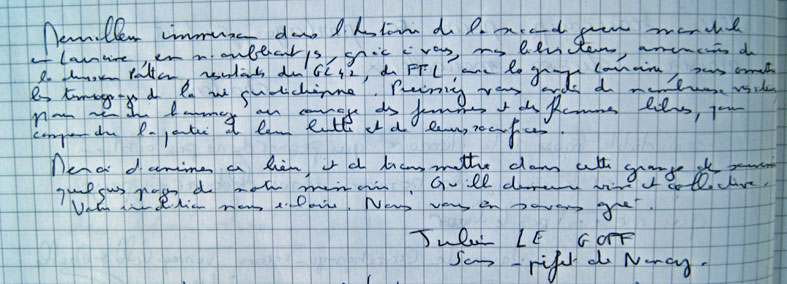 Merveilleuse immersion dans l'histoire de la seconde guerre mondiale
en Lorraine, en n'oubliant pas, grâce à vous, nos libérateurs, américains de
la division Patton, résistants du GL42, des FFL, avec le groupe Lorraine, sans omettre
les témoignages de la vie quotidienne. Puissiez vous avoir de nombreux visiteurs
pour rendre hommage au courage des femmes et des hommes libres, pour
comprendre la portée de leur lutte et de leurs sacrifices.
Merci d'animer ce lien, et de transmettre dans cette grange des souvenirs
quelques pages de notre mémoire. Qu'elle demeure vive et collective.
Votre érudition nous éclaire. Nous vous en savons gré.
Julien LE GOFF
Sous-préfet de Nancy.